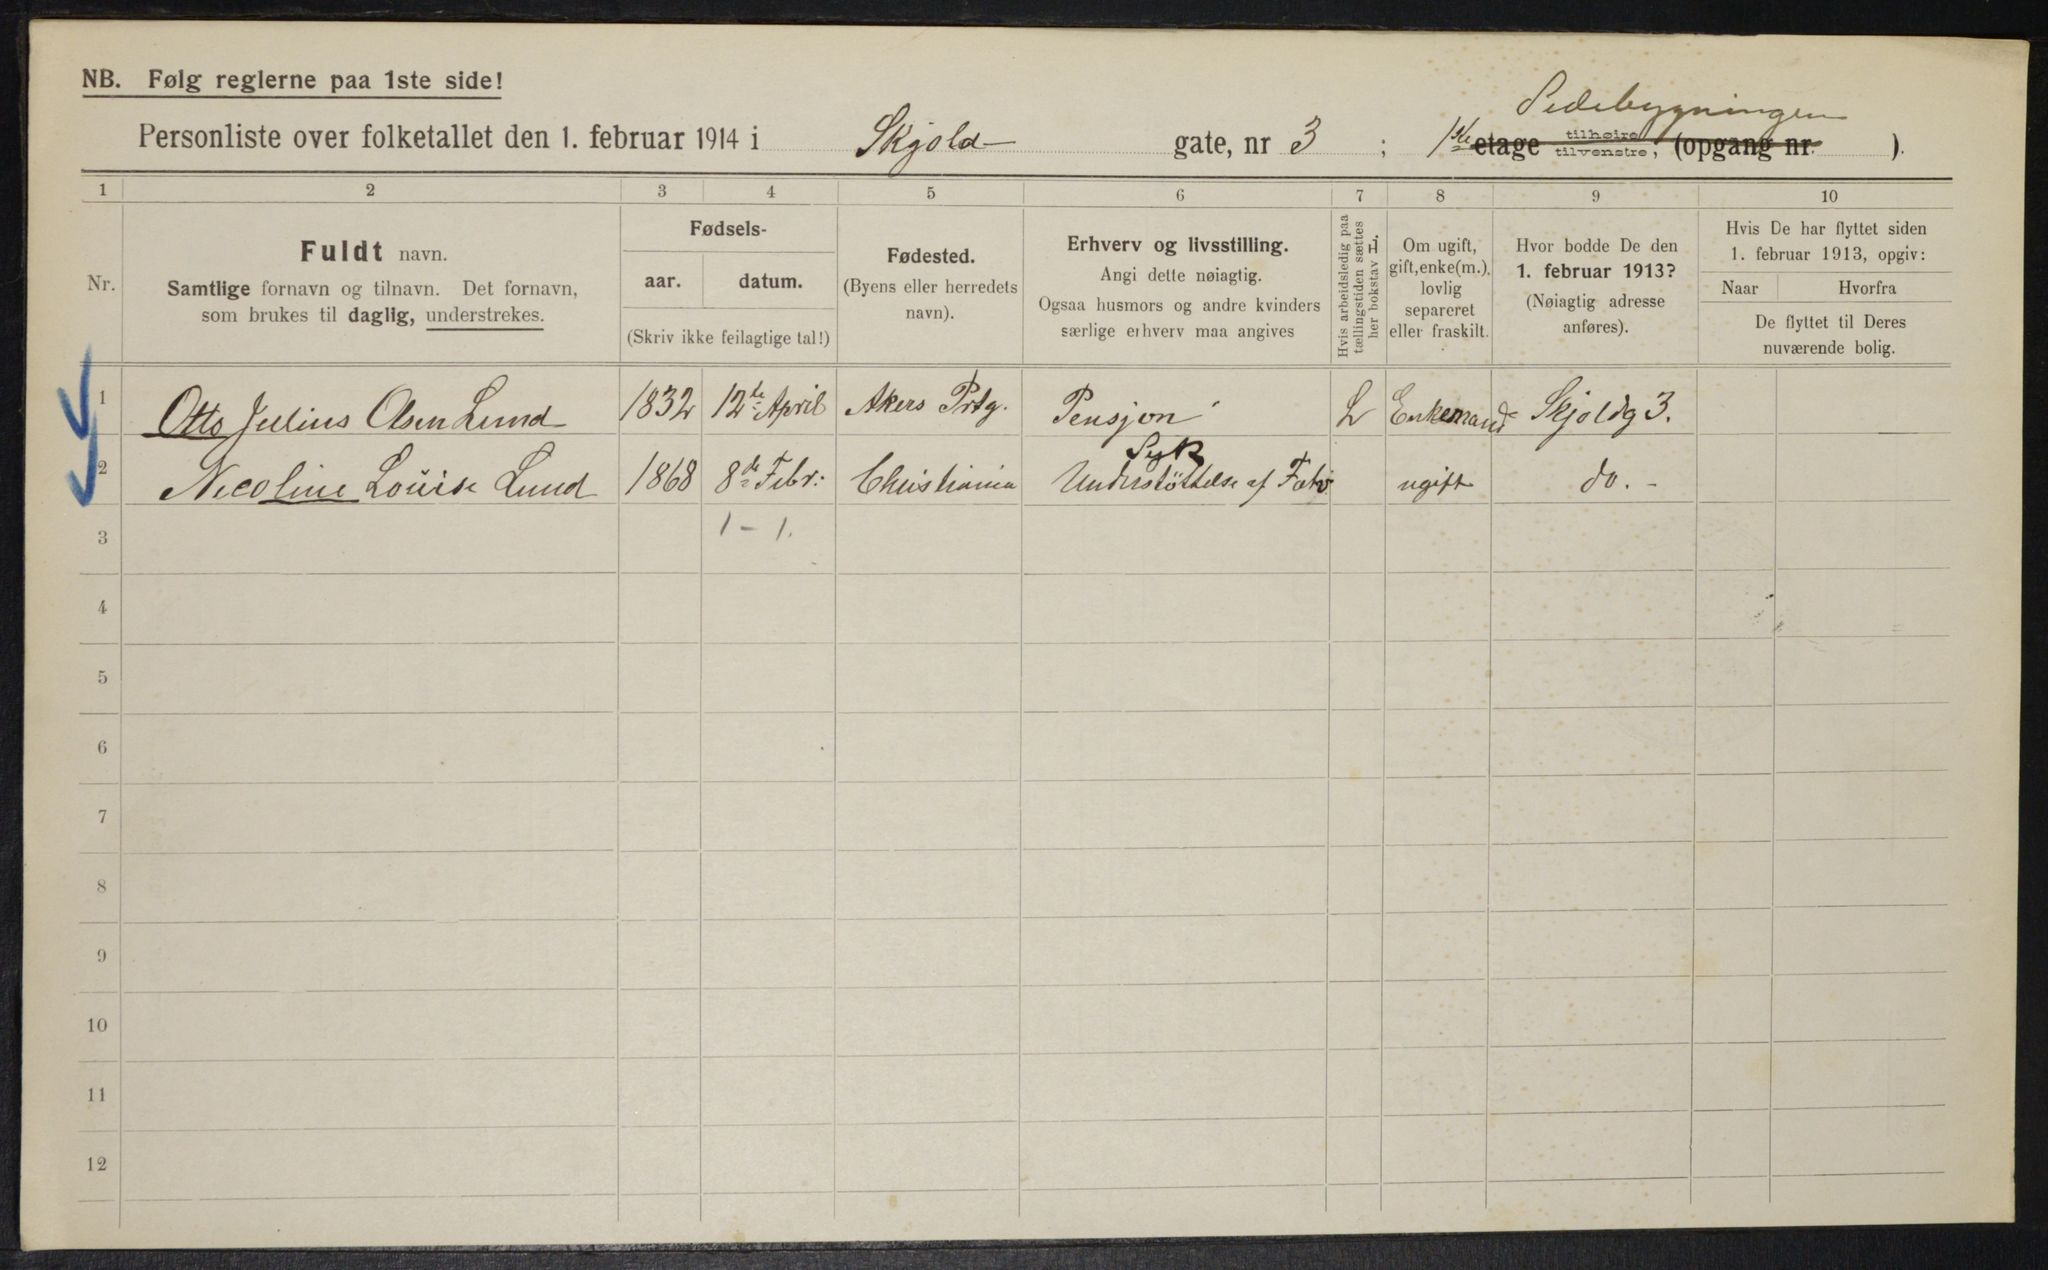 NB. Følg reglerne paa 1ste side!
Sidebygningen
Personliste over folketallet den 1. februar 1914 i Skjold gate, nr 3 ; 1ste etage tilhøire tilvenstre, (opgang nr. ).
1 2 3 4 5 6 7 8 9 10
Nr.
Fuldt navn.
Samtlige fornavn og tilnavn. Det fornavn,
som brukes til daglig, understrekes.
Fødsels-
aar. datum.
(Skriv ikke feilagtige tal!)
Fødested.
(Byens eller herredets
navn).
Erhverv og livsstilling.
Angi dette nøiagtig.
Ogsaa husmors og andre kvinders
særlige erhverv maa angives
Hvis arbeidsledig paa
tællingstiden sættes
her bokstav L.
Om ugift,
gift, enke(m.),
lovlig
separeret
eller fraskilt.
Hvor bodde De den
1. februar 1913?
(Nøiagtig adresse
anføres).
Hvis De har flyttet siden
1. februar 1913, opgiv:
Naar Hvorfra
De flyttet til Deres
nuværende bolig.
1 Otto Julius Olsen Lund 1832 12te April Akers Prtg. Pensjon L Enkemand Skjoldg 3.
Syk
2 Nicoline Louise Lund 1868 8de Febr: Christiania Understøttelse af Fatv ugift do. -
3 1 - 1.
4
5
6
7
8
9
10
11
12